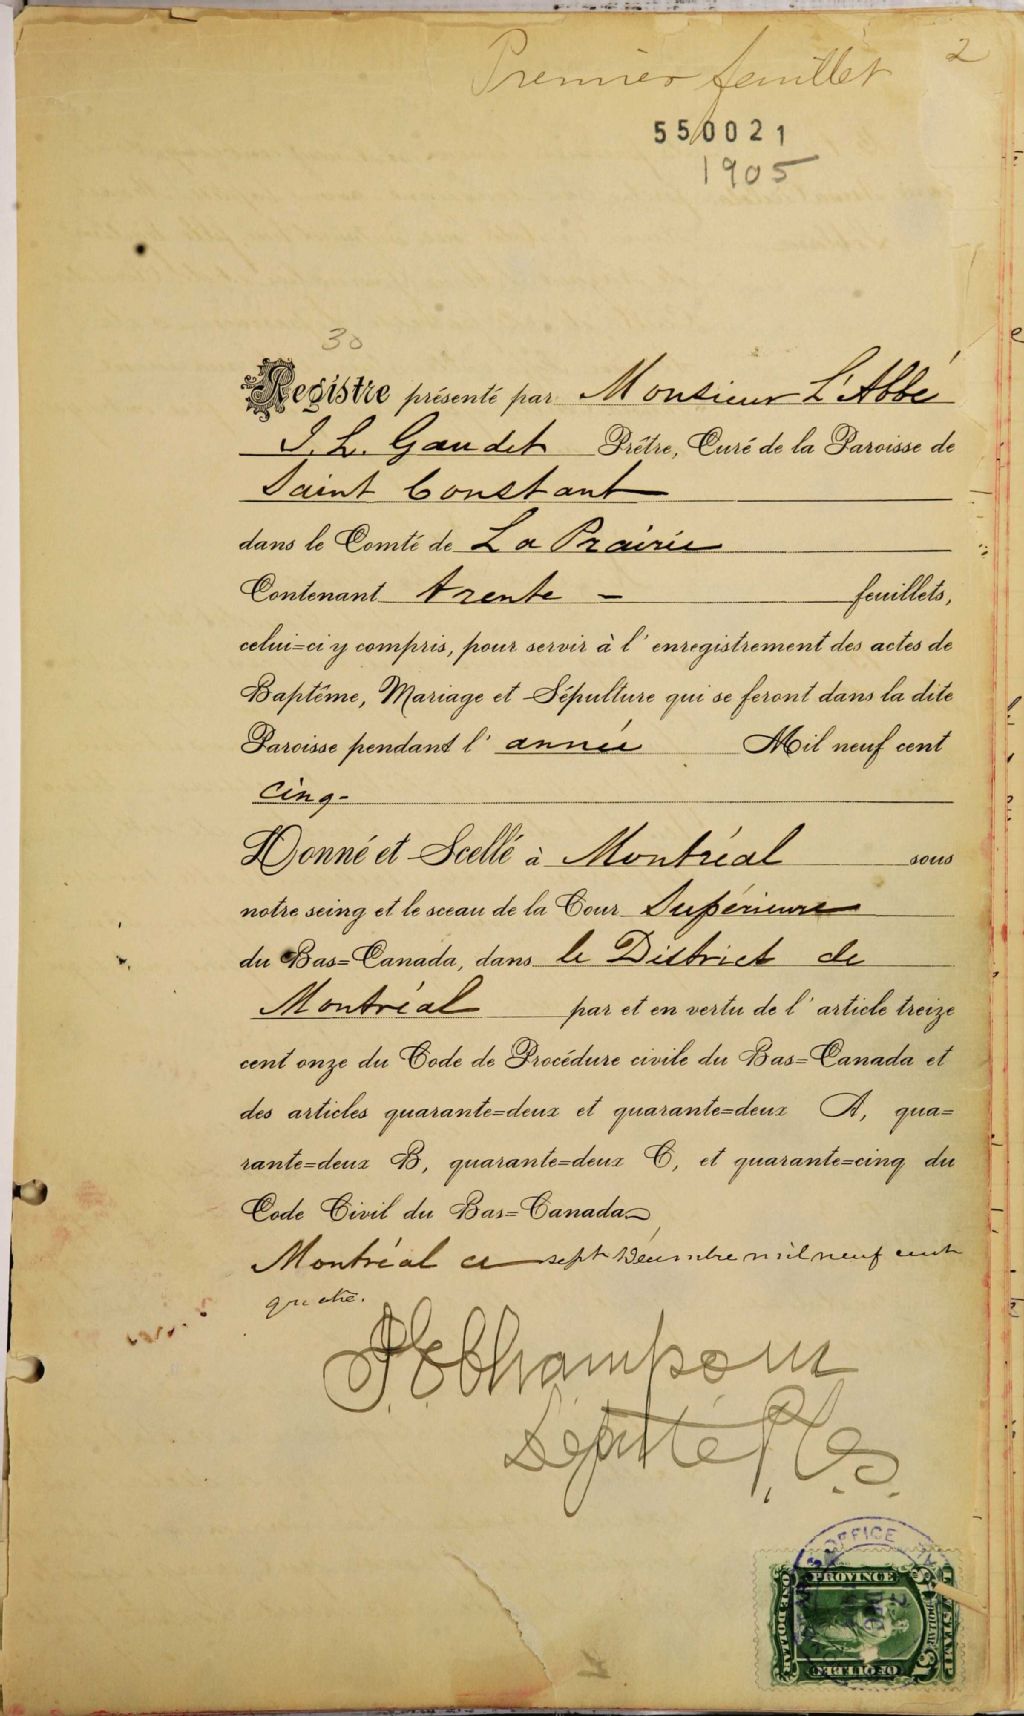 Premier feuillet 2
550021
1905
30
Registre présenté par Monsieur L'Abbé
J. L. Gaudet Prêtre, Curé de la Paroisse de
Saint Constant
dans le Comté de La Prairie
Contenant trente - feuillets,
celui=ci y compris, pour servir à l'enregistrement des actes de
Baptême, Mariage et Sépulture qui se feront dans la dite
Paroisse pendant l'année Mil neuf cent
cinq-
Donné et Scellé à Montréal sous
notre seing et le sceau de la Cour Supérieure
du Bas=Canada, dans le District de
Montréal par et en vertu de l'article treize
cent onze du Code de Procédure civile du Bas=Canada et
des articles quarante=deux et quarante=deux A, qua=
rante=deux B, quarante=deux C, et quarante=cinq du
Code Civil du Bas=Canada
Montréal ce sept Décembre mil neuf cent
quatre.
Député P. C. S.
OFFICE
PROVINCE
QUEBEC
ONE DOLLAR
STAMP
DEC